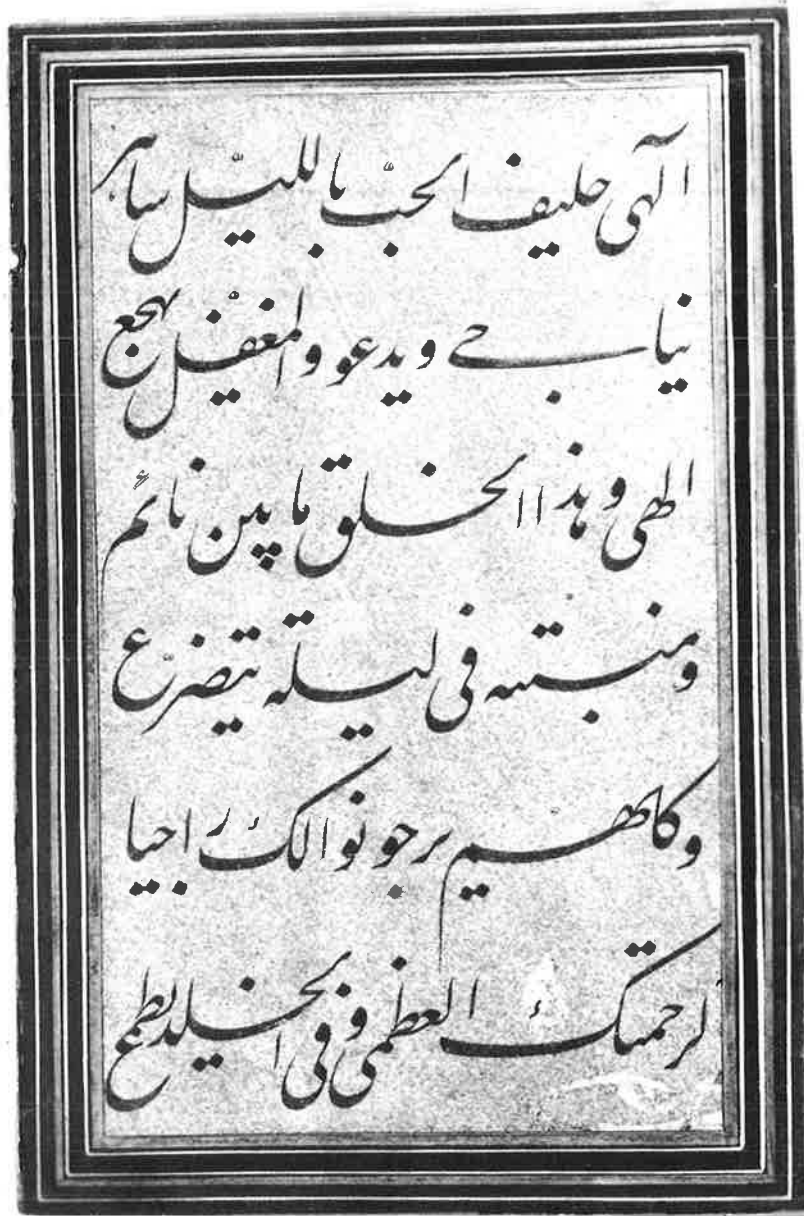 الهي حليف الحبّ بالليل ساهر
يناجي ويدعو والمغفل يهجع
الهي وهذا الخلق ما بين نائم
ومنتبه في ليله يتضرّع
وكلهم يرجو نوالك راجيا
لرحمتك العظمى وفي الخلد يطمع